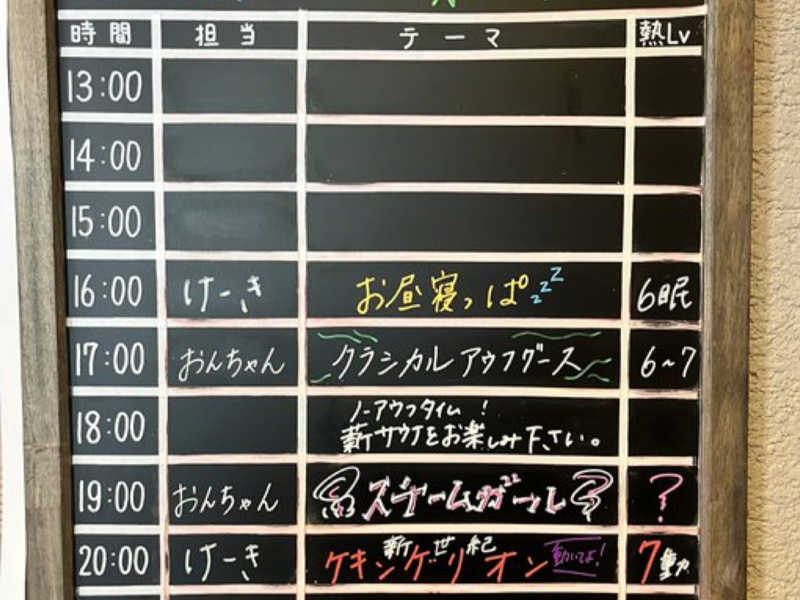 時間 担当 テーマ 熱Lv
13:00
14:00
15:00
16:00 けーき お昼寝っぱzzz 6眠
17:00 おんちゃん クラシカルアウフグース 6~7
18:00 ノーアウフタイム!
薪サウナをお楽しみ下さい。
19:00 おんちゃん スチームガール ?
20:00 けーき 新世紀
ケキンゲリオン 動いてよ! 7動